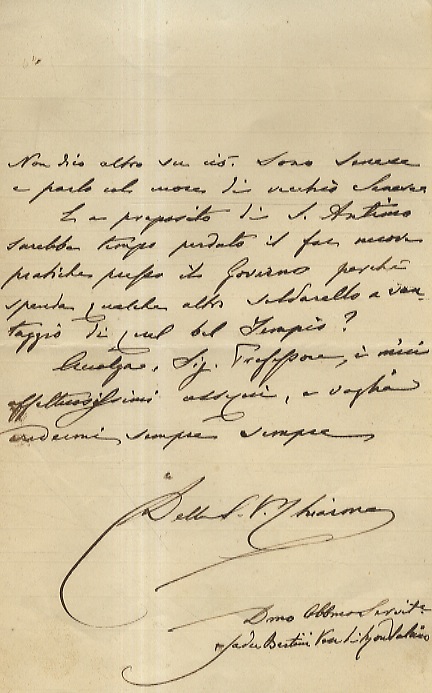 Non dico altro su ciò. Sono Senese
e parlo col cuore di vecchio Senese
E a proposito di S. Antimo
sarebbe tempo perduto il far nuove
pratiche presso il Governo perchè
spenda qualche altro soldarello a van-
taggio di quel bel Tempio?
Accolga, Sig. Professore, i miei
affettuosissimi ossequi, e voglia
credermi sempre sempre
Della S. V. Chiarma
Dmo Obbmo Servitre
Bertini